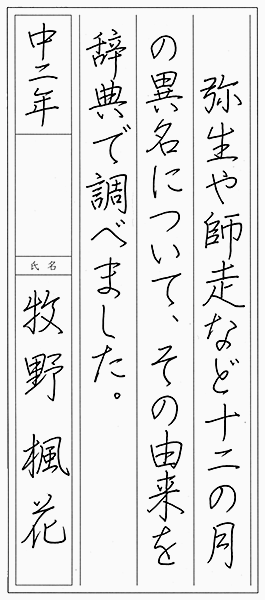 弥生や師走など十二の月
の異名について、その由来を
辞典で調べました。
中二年
氏名
牧野楓花